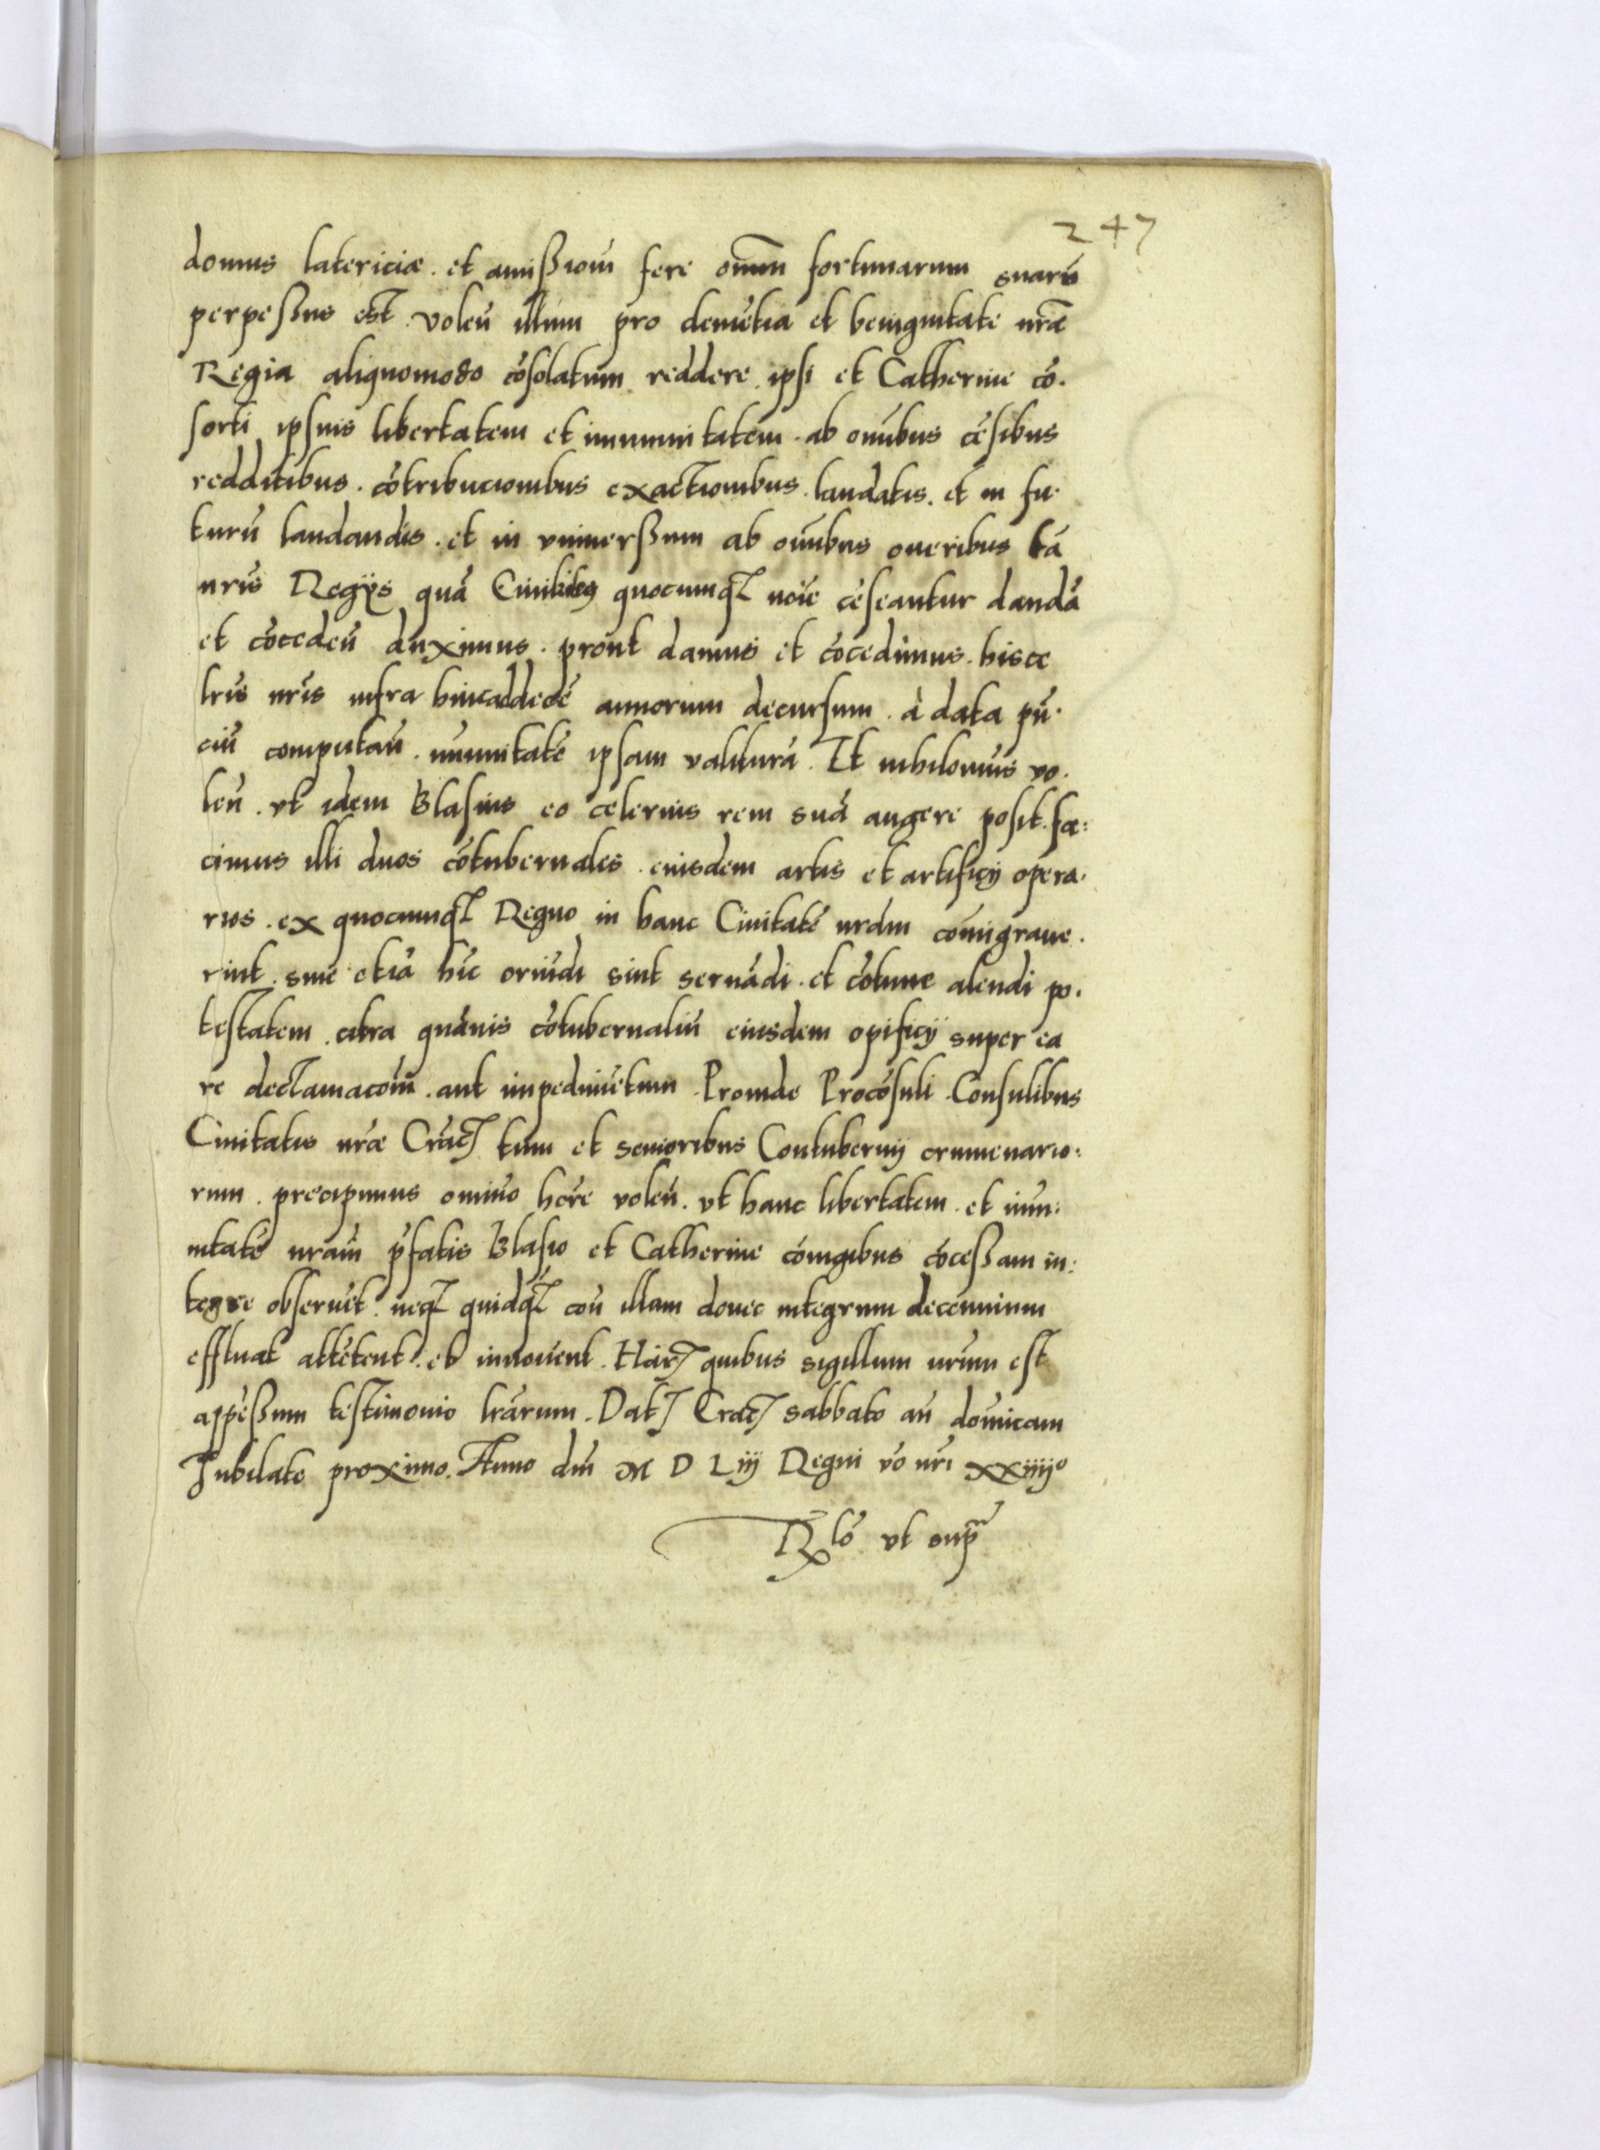 247
domus latericiæ . et amißioñ fere oīum fortunarum suarū
perpeßus est . Voleñ illum pro clemētia et benignitate nrā
Regia aliquomodo cōsolatum reddere . ipsi et Catherine cō.
sorti ipsius libertatem et immunitatem . ab oībus cēsibus
redditibus . cōtribucionibus exactionibus . laudatis . et in fu.
turū laudandis . et in vniuerßum ab oībus oneribus tā
nris Regÿs quā Ciuilibus quocumq noīe cēseantur dandā
et cōcedeñ duximus . prout damus et cōcedimus . hisce
lris nris infra hinc ad decē annorum decursum . à data pñ.
ciū computañ . īmunitatē ipsam valiturā . Et nihilominus vo.
leñ . vt idem Blasius eo celerius rem suā augere posit . fæ:
cimus illi duos cōtubernales . eiusdem artis et artificij opera.
rios . ex quocumq Regno in hanc Ciuitatē nram cōmigraue.
rint . siue etiā hīc oriūdi sint seruādi . et cōtinue alendi po.
testatem . citra quāuis cōtubernaliū eiusdem opificij super ea
re declamacoīm . aut impedimētum . Proinde Procōsuli . Consulibus
Ciuitatis nræ Crac tum et senioribus Contubernij crumenario:
rum . precipimus omīno hēre voleñ . vt hanc libertatem . et imu:
nitatē nram p̄fatis Blasio et Catherine cōiugibus cōceßam in:
tegre obseruēt . neq quidq coñ illam donec integrum decennium
effluat attētent . et innouent . Har quibus sigillum nrum est
appēßum testimonio lrarum . Dat Crac sabbato añ dominicam
Jubilate proximo . Anno dñi M D Liij Regni vo nri xxiiijº
Rlō vt supra